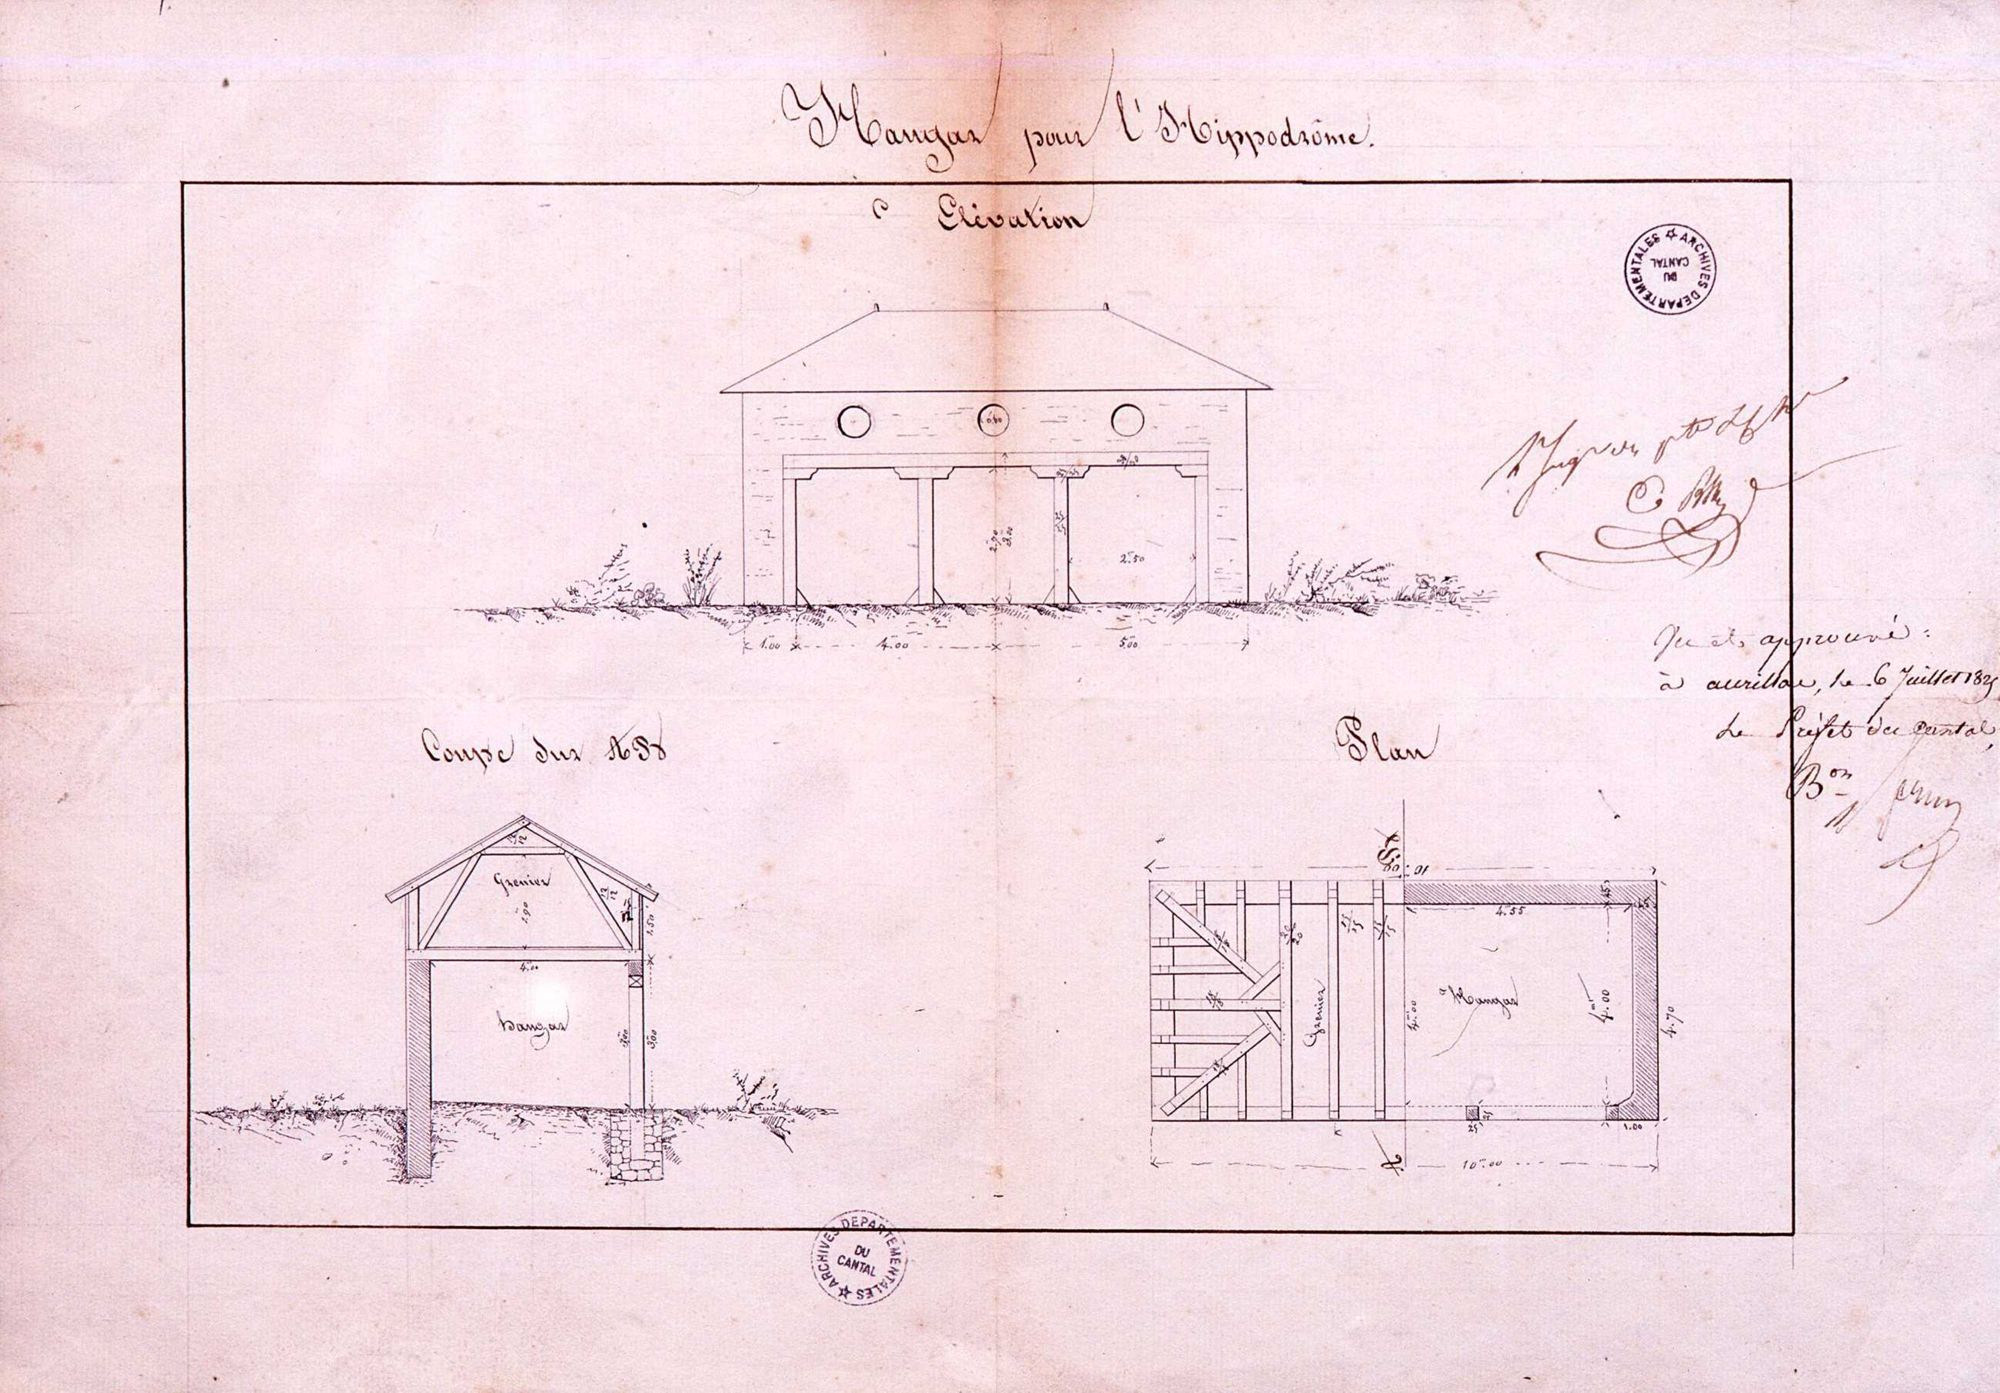 Hangar pour l'Hippodrôme.
Elévation
ARCHIVES DEPARTEMENTALES
DU
CANTAL
0.60
2.90
3.00
25/25
2.50
1.00
4.00
5.00
Vu et approuvé :
à aurillac, le 6 Juillet 182
Le Préfet du Cantal,
Bon
Coupe sur AB
Grenier
1.90
12/12
1.50
4.00
hangar
3.00
Plan
B
10.00
45
45
4.55
20/20
15/15
Grenier
4.00
Hangar
4.00
4.70
25
1.00
A
10.00
ARCHIVES DEPARTEMENTALES
DU
CANTAL